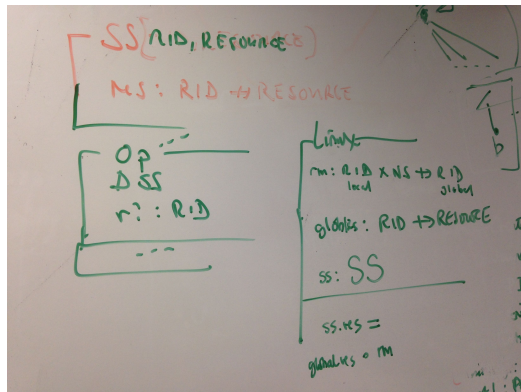 SS[RID, RESOURCE]
RES: RID ⇸ RESOURCE
Op
Δ SS
r?: RID
rm: RID × NS ⇸ RID
local global
globals: RID ⇸ RESOURCE
ss: SS
ss.res =
globalres ∘ rm